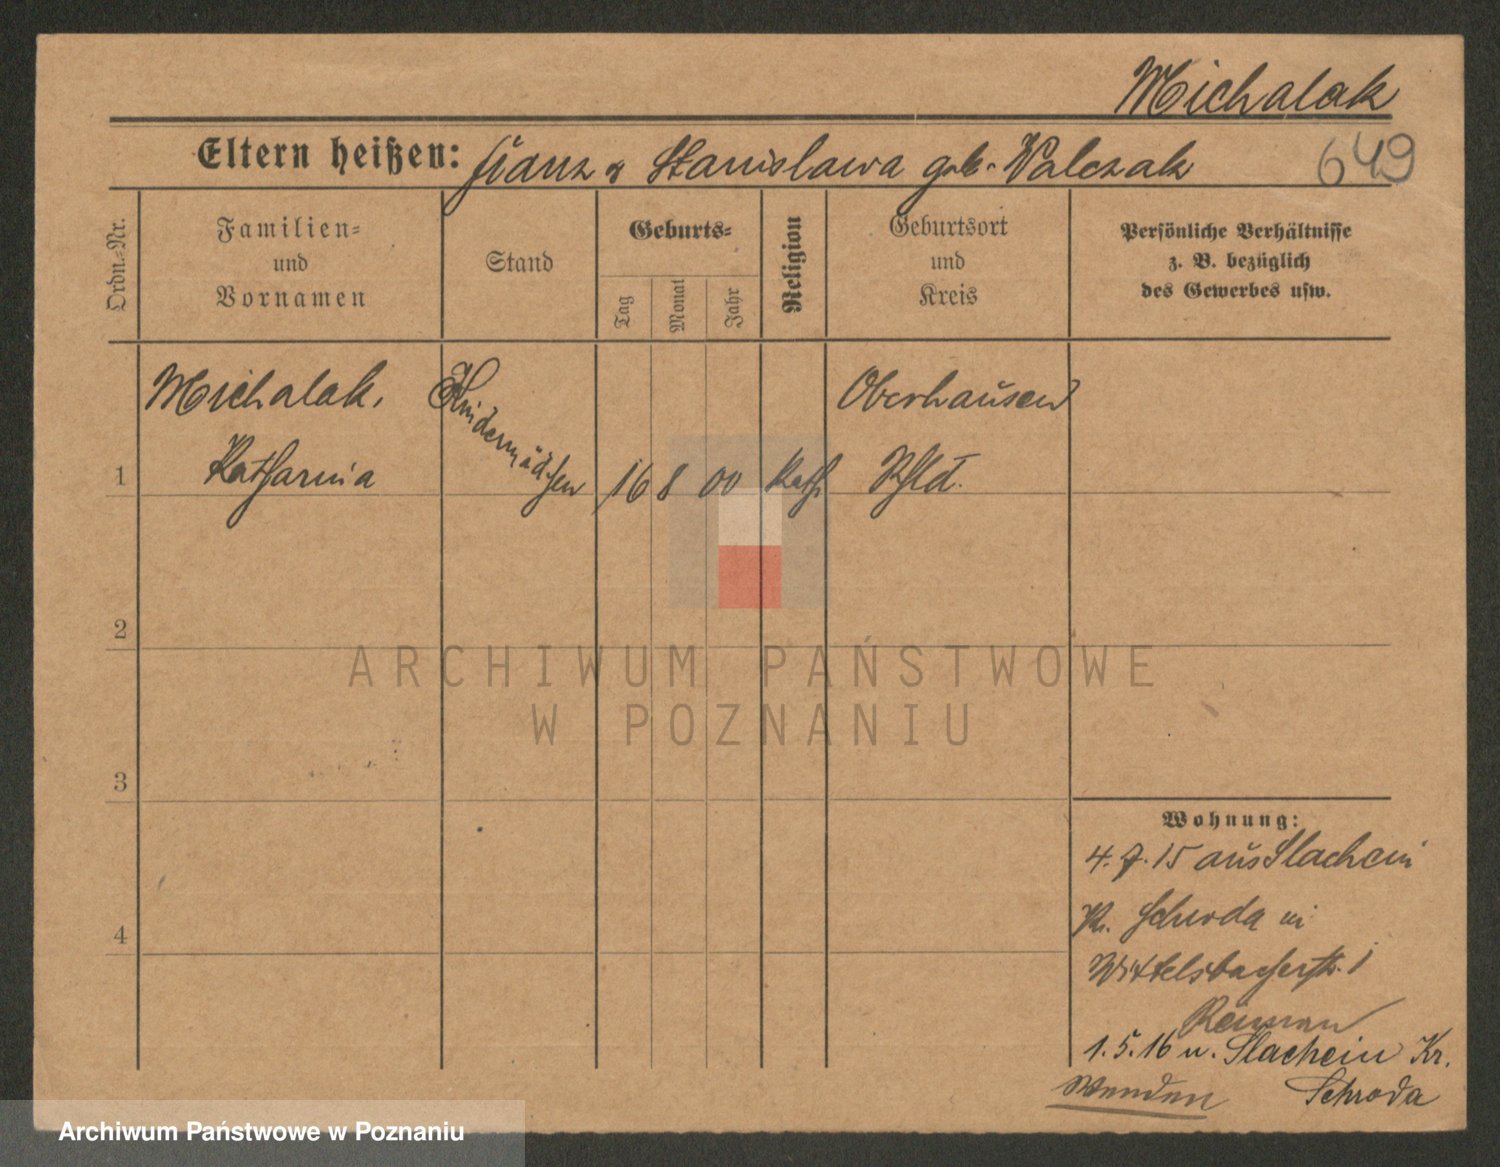 Michalak
649
Eltern heißen: Franz & Stanislawa geb. Walczak
Ordn.-Nr.
Familien-
und
Vornamen
Stand
Geburts-
Tag
Monat
Jahr
Religion
Geburtsort
und
Kreis
Persönliche Verhältnisse
z. B. bezüglich
des Gewerbes usw.
Michalak, Kindermädchen Oberhausen
1 Katharina 16 8 00 Kath Rhld.
2
3
4
Wohnung:
4. 7. 15 aus Slachcin
Kr. Schroda in
Wittelsbacherstr. 1
1. 5. 16 n. Slachcin Kr.
Wenden Schroda
ARCHIWUM PAŃSTWOWE
W POZNANIU
Archiwum Państwowe w Poznaniu